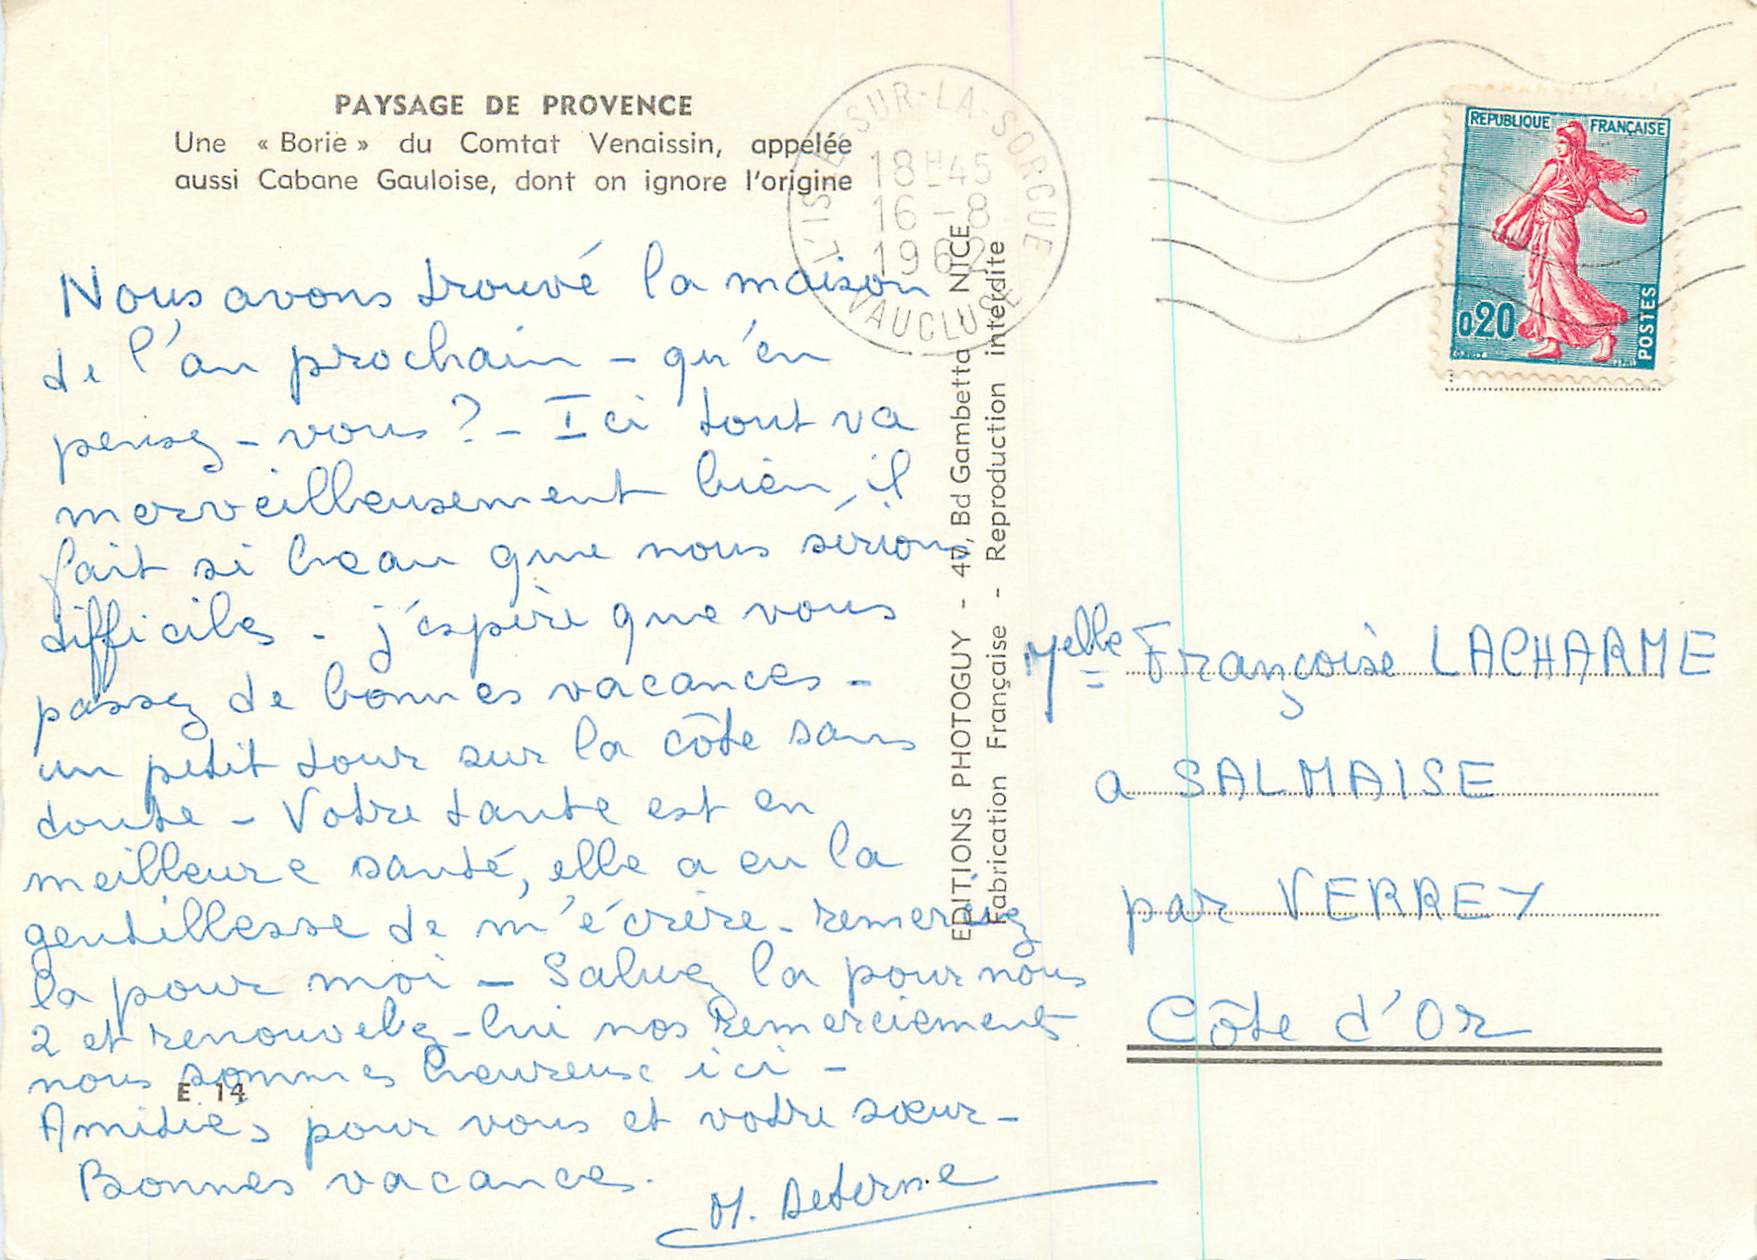 PAYSAGE DE PROVENCE
Une « Borie » du Comtat Venaissin, appelée
aussi Cabane Gauloise, dont on ignore l'origine
L'ISLE-SUR-LA-SORGUE
18H45
16-8
1962
VAUCLUSE
REPUBLIQUE FRANÇAISE
0,20
POSTES
Nous avons trouvé la maison
de l'an prochain - qu'en
pensez-vous ? - Ici tout va
merveilleusement bien, il
fait si beau que nous sérions
difficiles - j'éspère que vous
passez de bonnes vacances -
un petit tour sur la côte sans
doute - Votre tante est en
meilleure santé, elle a eu la
gentillesse de m'écrire - remerciez
la pour moi - Saluez la pour nous
2 et renouvelez-lui nos Remerciements
nous sommes heureuse ici -
Amitiés pour vous et votre sœur -
Bonnes vacances.
E. 14
EDITIONS PHOTOGUY - 40, Bd Gambetta NICE
Fabrication Française - Reproduction interdite
Melle Françoise LACHARME
a SALMAISE
par VERREY
Côte d'Or